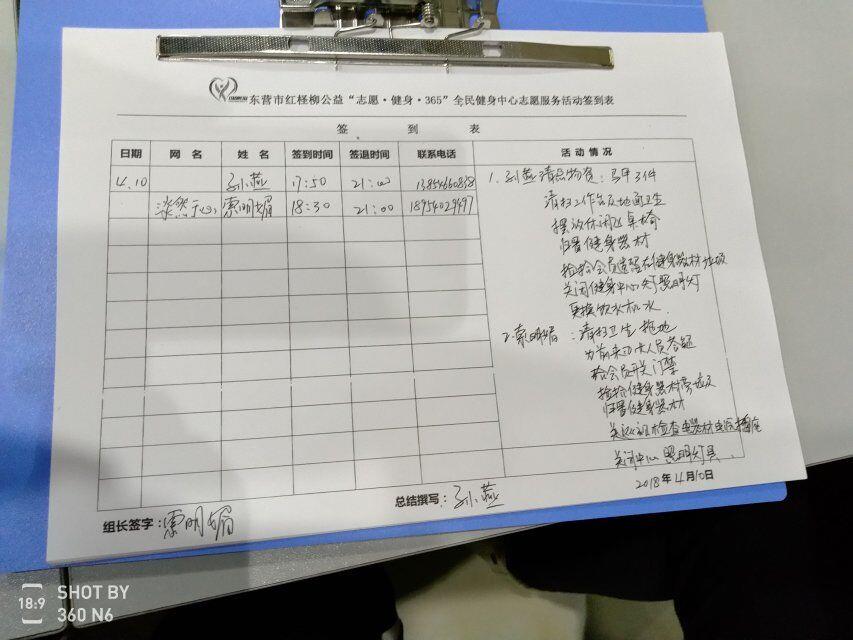 东营市红柽柳公益“志愿·健身·365”全民健身中心志愿服务活动签到表
签 到 表
日期 网 名 姓 名 签到时间 签退时间 联系电话 活动情况
4.10 孙燕 17:50 21:00 13854660838
索明媚 18:30 21:00 18954029497
1. 孙燕 清点物资: 马甲3件
清扫工作台及地面卫生
摆放休闲区桌椅
归置健身器材
捡拾会员遗留在健身器材垃圾
关闭健身中心灯照明灯
更换饮水机水
2. 索明媚: 清扫卫生 拖地
为前来办卡人员答疑
给会员开关门禁
捡拾健身器材旁垃圾
归置健身器材
检查电器材电源插座
关闭中心照明灯具.
2018年4月10日
总结撰写: 孙燕
组长签字: 索明媚
SHOT BY
18:9
360 N6